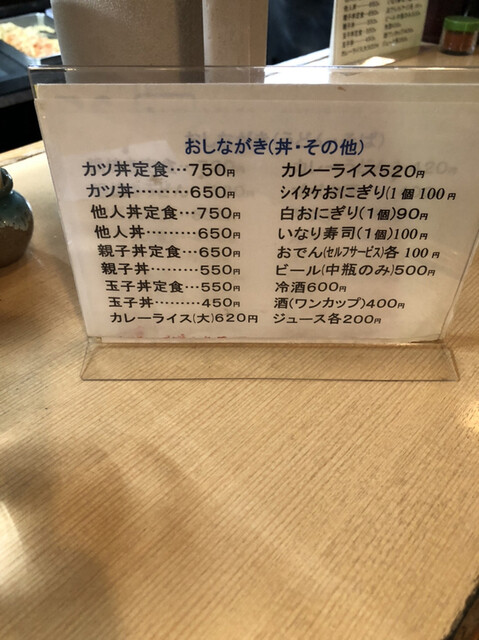 おしながき(丼・その他)
カツ丼定食…750円
カツ丼………650円
他人丼定食…750円
他人丼………650円
親子丼定食…650円
親子丼………550円
玉子丼定食…550円
玉子丼………450円
カレーライス(大)620円
カレーライス520円
シイタケおにぎり(1個100円
白おにぎり(1個)90円
いなり寿司(1個)100円
おでん(セルフサービス)各100円
ビール(中瓶のみ)500円
冷酒600円
酒(ワンカップ)400円
ジュース各200円